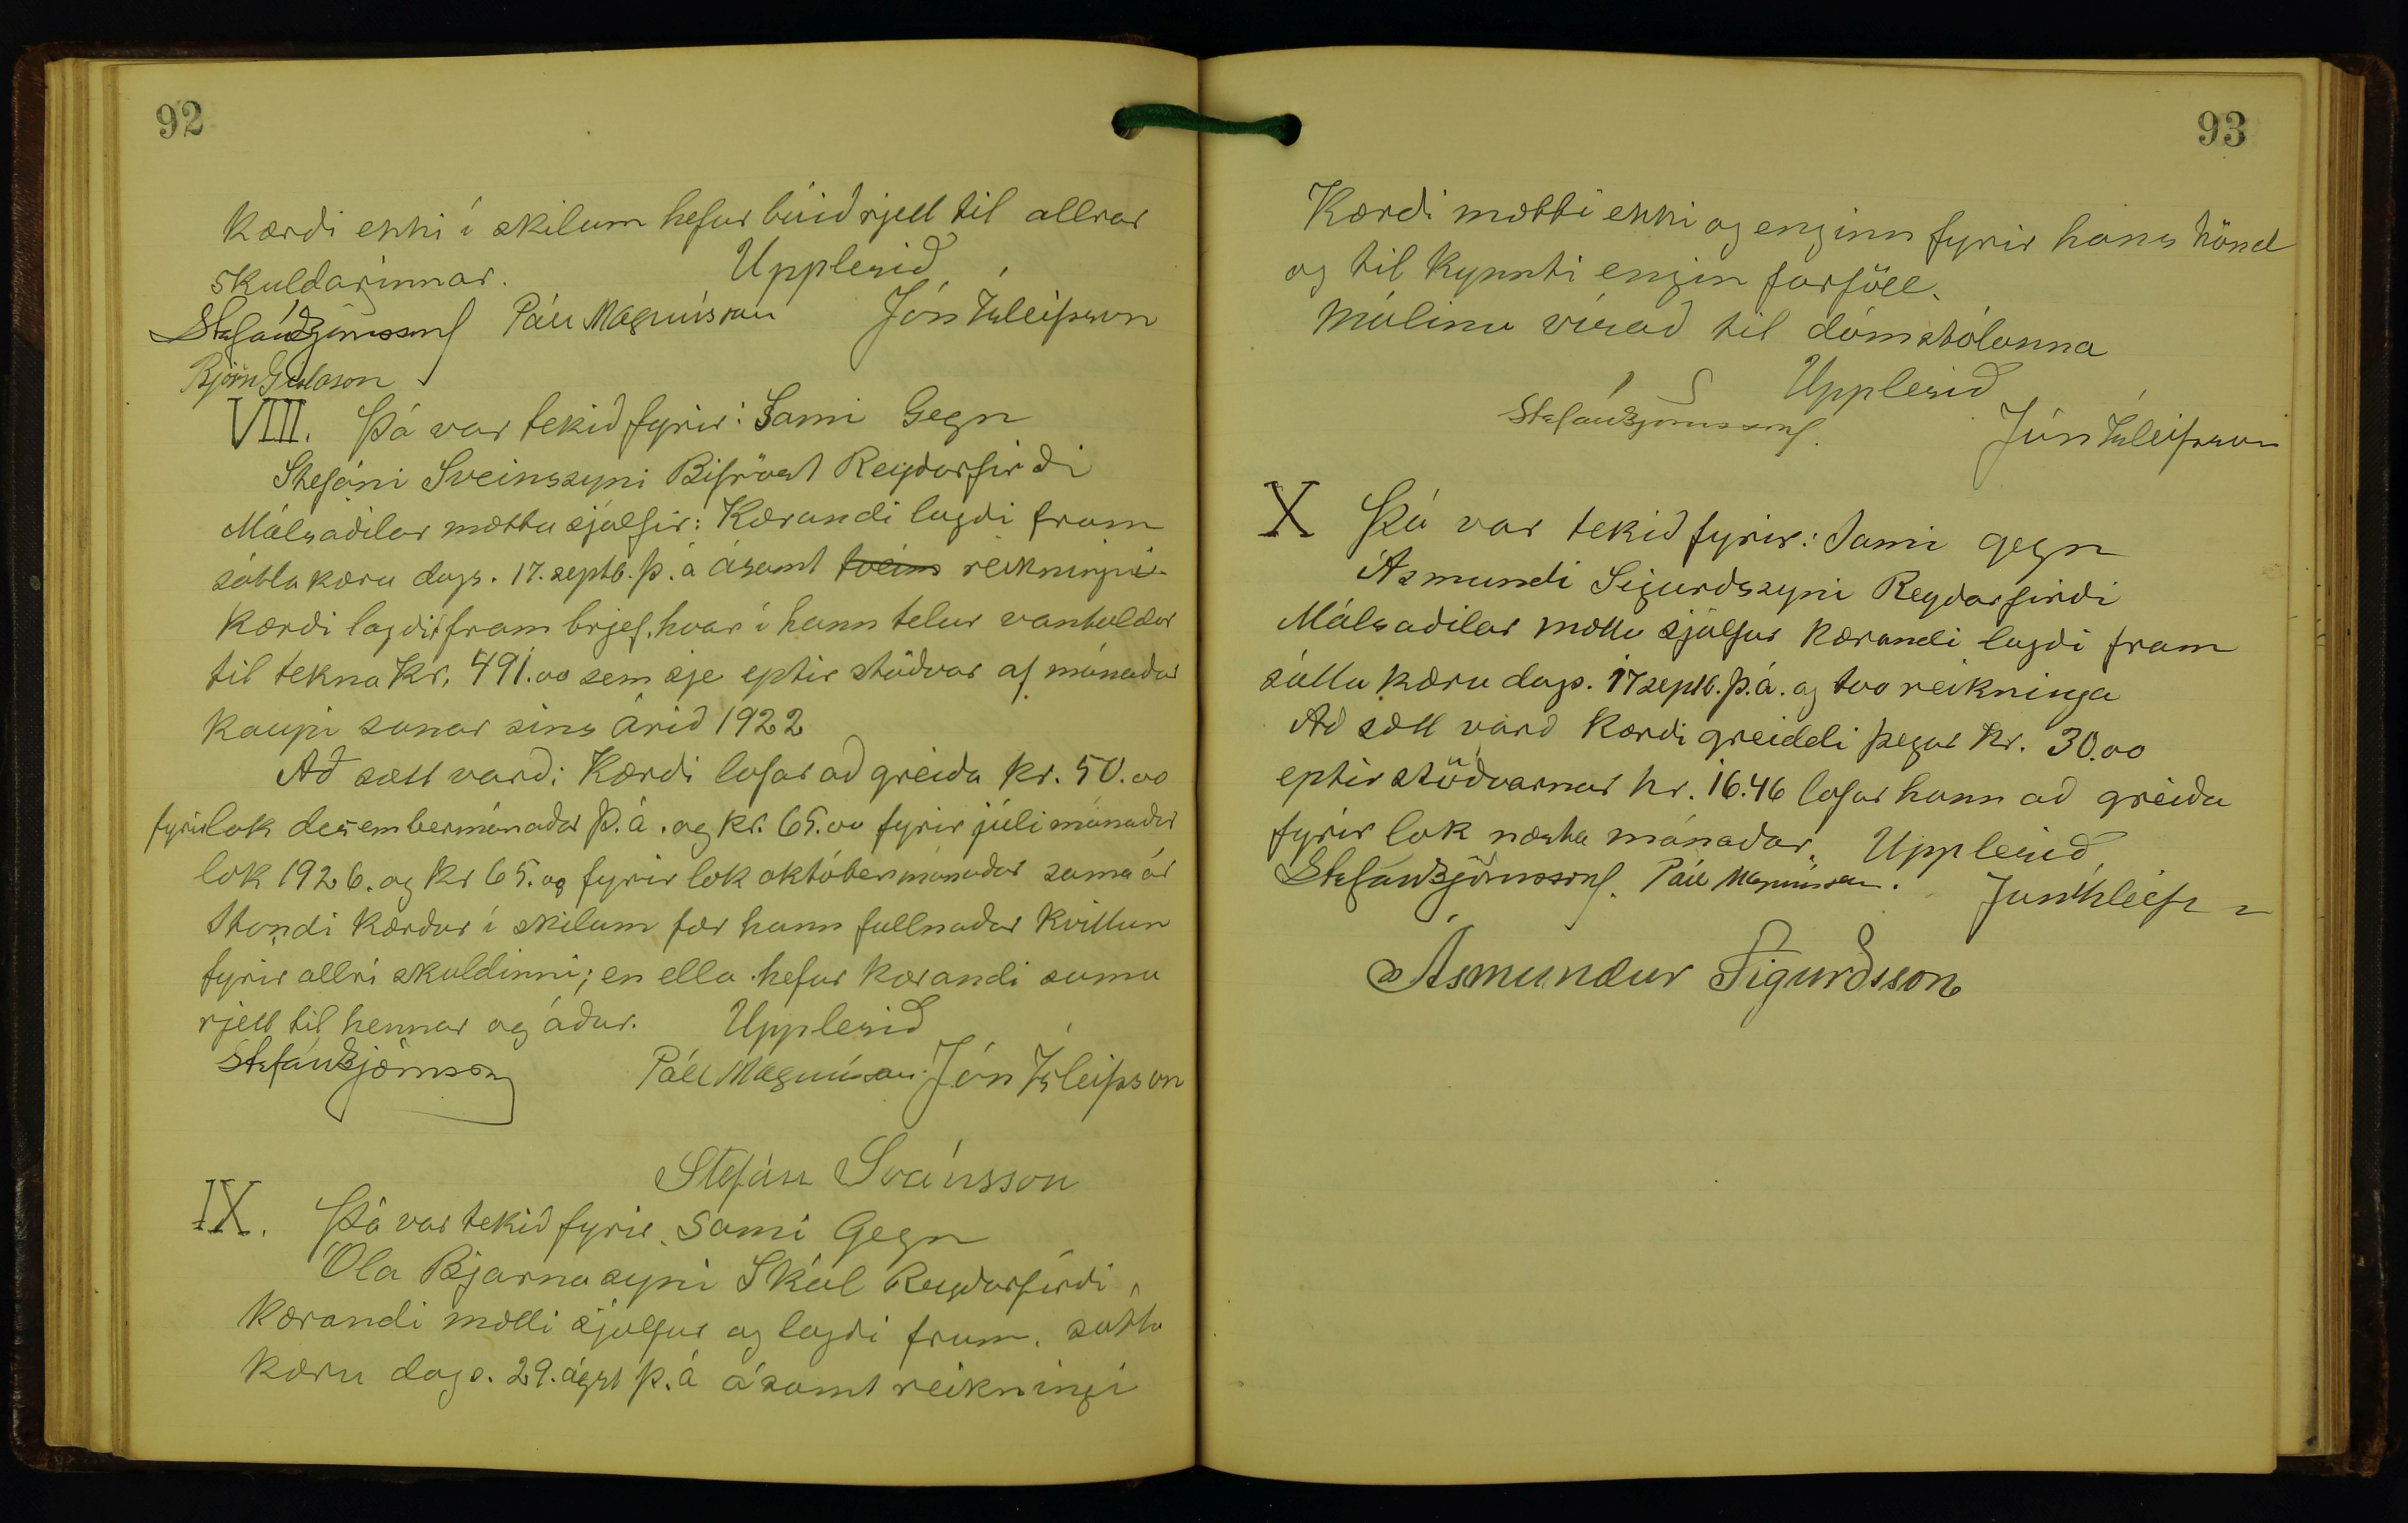 92
Kærði ekki í skilum hefur búið rjett til allrar
skuldarinnar. Upplesið
Stefán Björnsson Páll Magnússon Jón Ísleifsson
Björn Gíslason
VIII. Þá var tekið fyrir: Sami Gegn
Stefáni Sveinssyni Bifröst Reyðarfirði
Málsaðilar mættu sjálfir: Kærandi lagði fram
sáttakæru dags. 17. septb. þ. á ásamt tveim reikningi
Kærði lagði fram brjef, hvar í hann telur vantaldar
til tekna Kr, 491.00 sem sje eptir stöðvar af mánaðar
kaupi sonar síns árið 1922
Að sætt varð: Kærði lofar að greiða kr. 50.00
fyrir lok desembermánaðar þ. á. og kr. 65.00 fyrir júlímánaðar
lok 1926. og Kr 65.00 fyrir lok októbermánaðar sama ár
Standi kærður í skilum fær hann fullnaðar kvittun
fyrir allri skuldinni; en ella hefur kærandi sama
rjett til hennar og áður. Upplesið
Stefán Björnsson Páll Magnússon. Jón Ísleifsson
Stefán Sveinsson
IX. Þá var tekið fyrir. Sami Gegn
Óla Bjarnasyni Skál Reyðarfirði,
Kærandi mætti sjálfur og lagði fram. sátta
kæru dags. 29. ágst þ. á ásamt reikningi
93
Kærði mætti ekki og enginn fyrir hans hönd
og til kynnti engin forföll.
Málinu vísað til dómstólanna
Upplesið
Stefán Björnsson. Jón Ísleifsson
X Þá var tekið fyrir: Sami gegn
Ásmundi Sigurðssyni Reyðarfirði
Málsaðilar mættu sjálfur kærandi lagði fram
sátta kæru dags. 17 septb. þ. á. og tvo reikninga
Að sætt varð Kærði greiddi þegar Kr. 30.00
eptirstöðvarnar kr. 16.46 lofar hann að greiða
fyrir lok næsta mánaðar. Upplesið
Stefán Björnsson. Páll Magnússon. Jón Ísleifsson
Ásmundur Sigurðsson